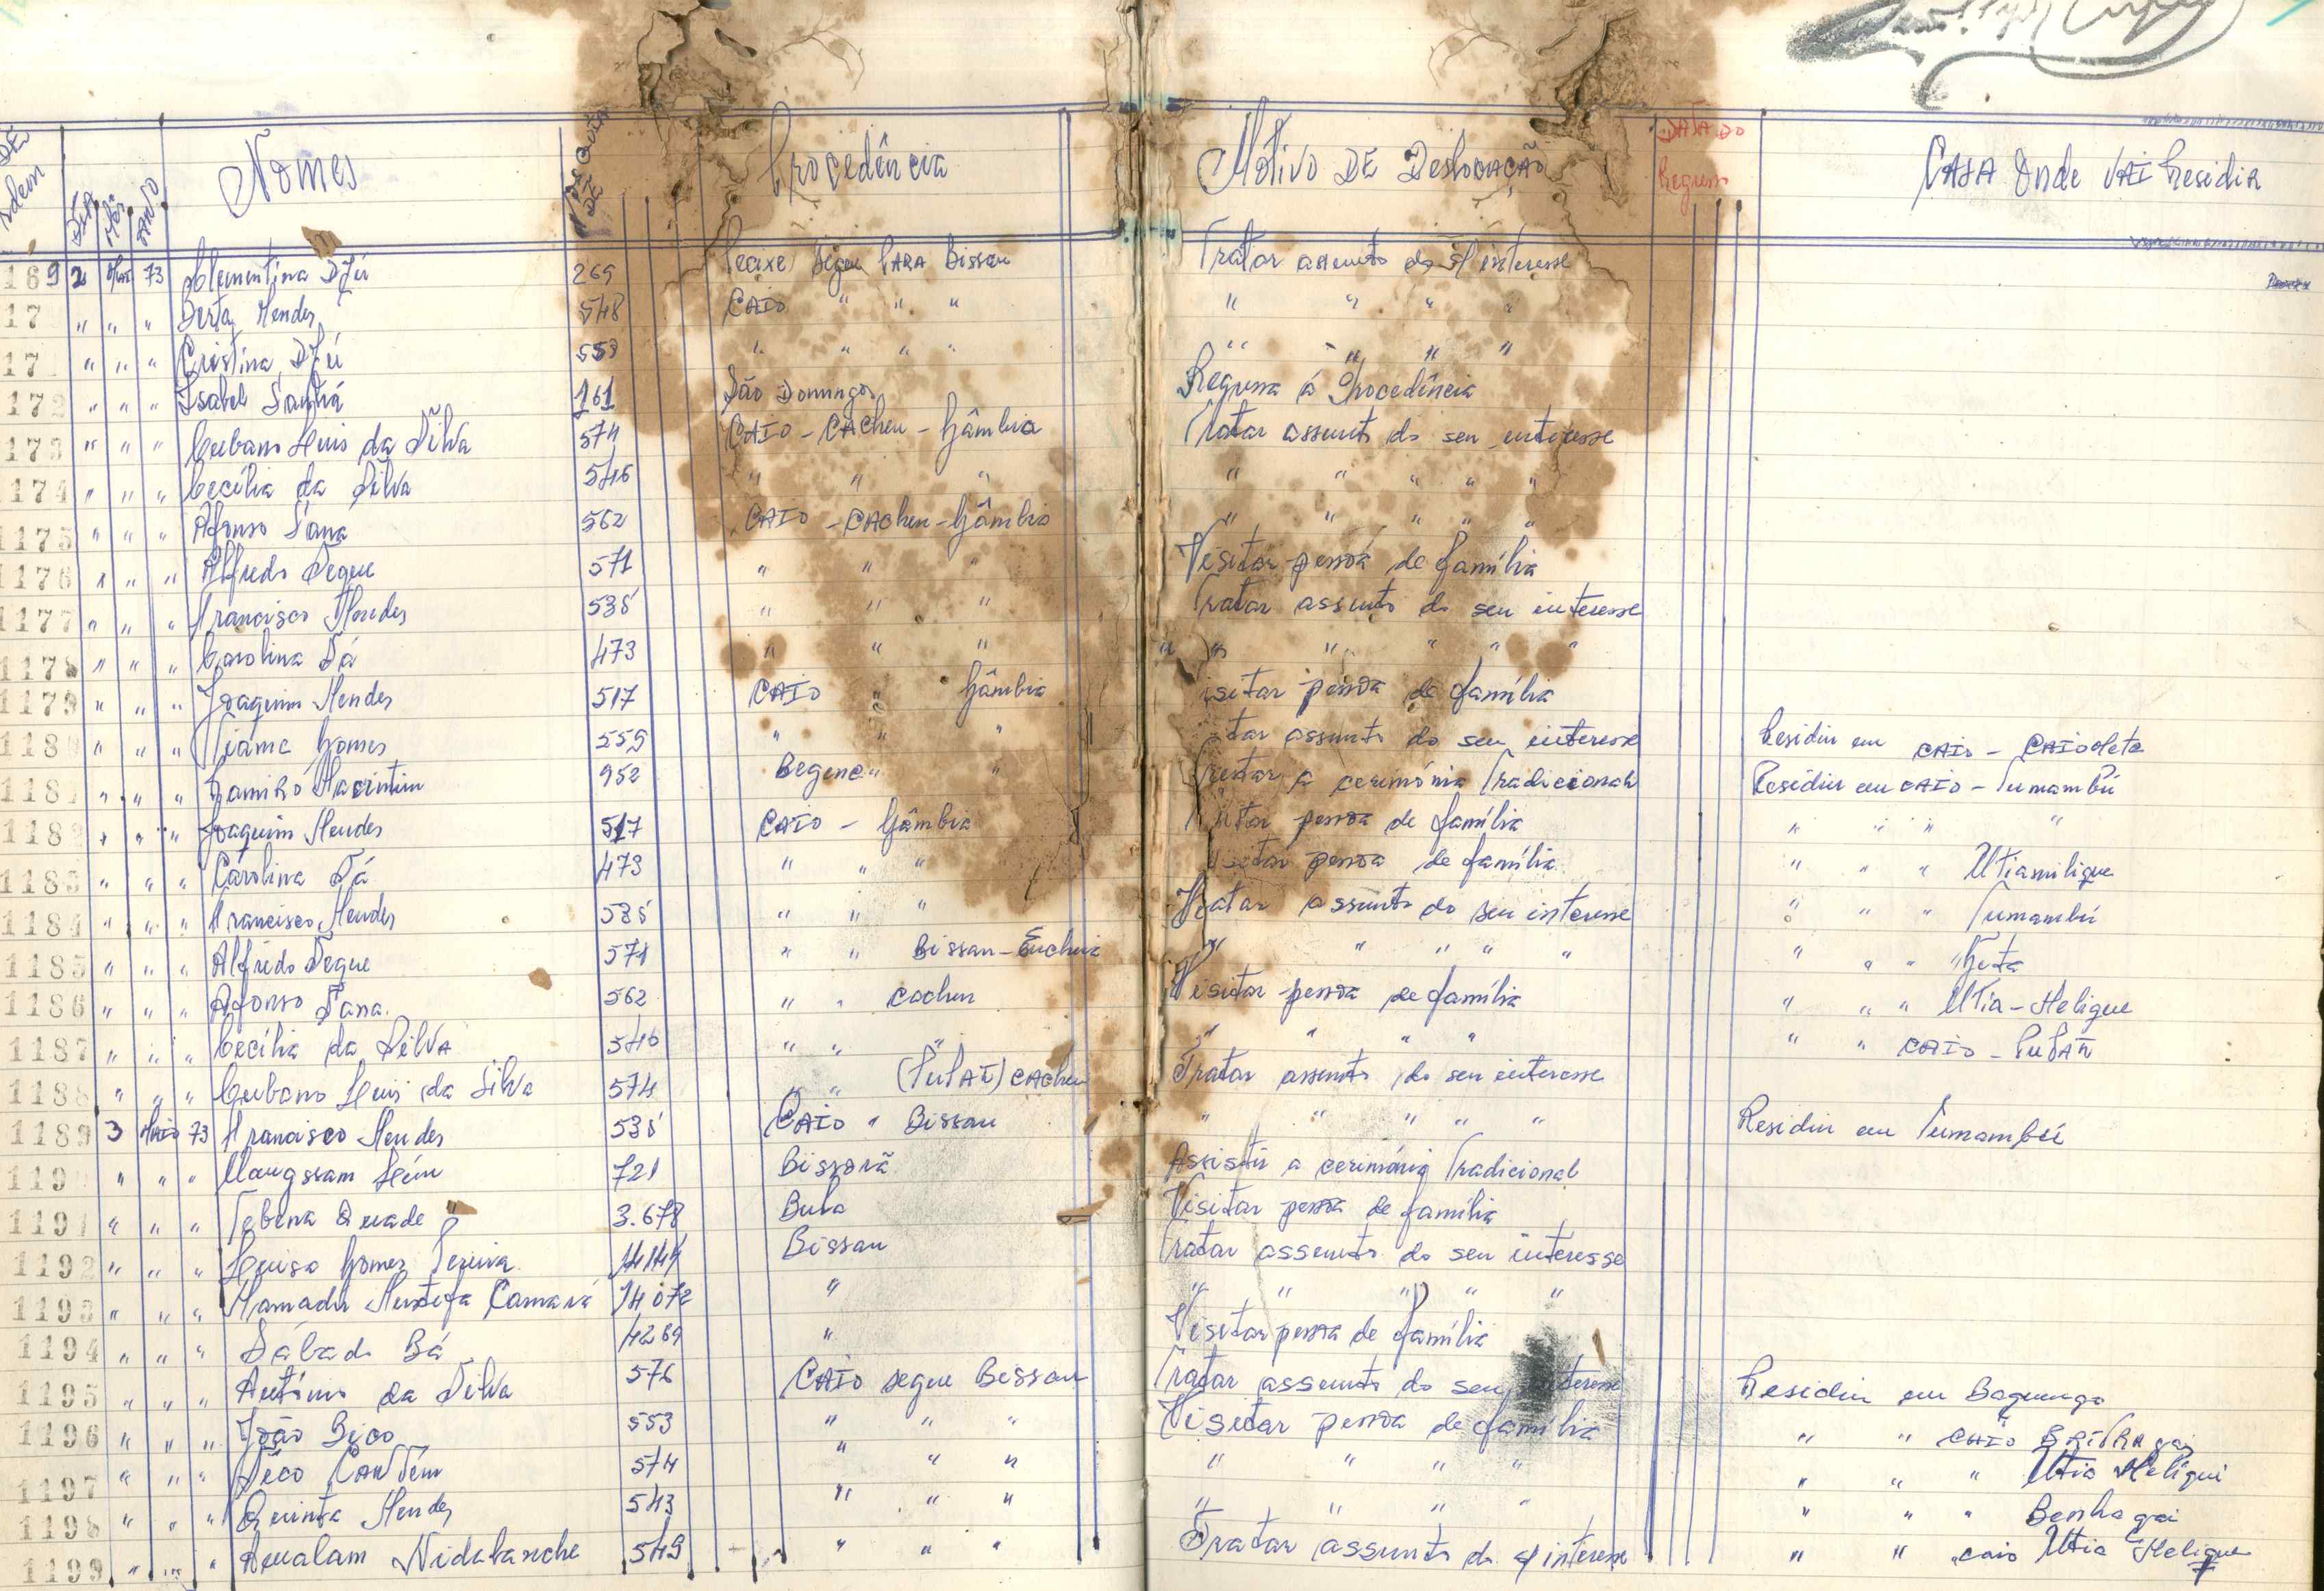 DE
DIA Mês ANO Nomes Nº DE GUIA Procedência Motivo DE Deslocação DATA DO Regresso CASA Onde VAI Residir
169 2 73 Clementina Djú 269 Pecixe Segue PARA Bissau Tratar assunto do s/ interesse
17 " " " Berta Mendes 548 CAIO " " " " " " "
17 " " " Cristina Djú " " " " " " " "
172 " " " Isabel 161 São Domingos Regressa á Procedência
173 " " " Cubano Luis da Silva 574 CAIO - CACheu - Gâmbia Tratar assunto do seu interesse
174 " " " Cecília da Silva 546 " " " " " " " "
1175 " " " Afonso 562 CAIO - CACheu - Gâmbia " " " " "
1176 " " " Alfredo 571 " " " Visitar pessoa de família
1177 " " " Francisco Mendes 535 " " " Tratar assunto do seu interesse
1178 " " " Carolina Sá 473 " " " " " " " "
1179 " " " Joaquim Mendes 517 CAIO " Gâmbia isitar pessoa de família
118 " " " Gomes 559 " " " tar assunto do seu interesse Residir em CAIO -
118 " " " 952 Begene " " a cerimónia Tradicional Residir em CAIO - Tumambú
118 " " " Joaquim Mendes 517 CAIO - Gâmbia pessoa de família " " " "
1183 " " " Carolina Sá 473 " " " Visitar pessoa de família " " " Utiamilique
1184 " " " Francisco Mendes 535 " " " Tratar assunto do seu interesse " " " Tumambú
1185 " " " Alfredo 571 " " Bissau - " " " " " " " "
1186 " " " Afonso 562 " " Cacheu Visitar pessoa de família " " " Utia - Helique
1187 " " " Cecília da Silva 546 " " " " " " " " " CAIO -
1188 " " " Cubano Luis da Silva 574 " " CACheu Tratar assunto do seu interesse
1189 3 MAIO 73 Francisco Mendes 535 CAIO " Bissau " " " " " Residir em Tumambú
119 " " " 721 Bissorã Assistir a cerimónia Tradicional
1191 " " " Quade 3.678 Bula Visitar pessoa de família
1192 " " " Luisa Gomes 14144 Bissau Tratar assunto do seu interesse
1193 " " " Mamadu Camará 14072 " " " " " "
1194 " " " Sábado Bá 4269 " Visitar pessoa de família
1195 " " " António da Silva 576 CAIO segue Bissau Tratar assunto do seu interesse Residir em
1196 " " " João Bico 553 " " " Visitar pessoa de família " " CAIO
1197 " " " 574 " " " " " " " " " " Utia Helíqui
1198 " " " Quinta Mendes 543 " " " " " " " " " " Benhagai
1199 " " " 549 " " " Tratar assunto do s/ interesse " " caio Utia Helique